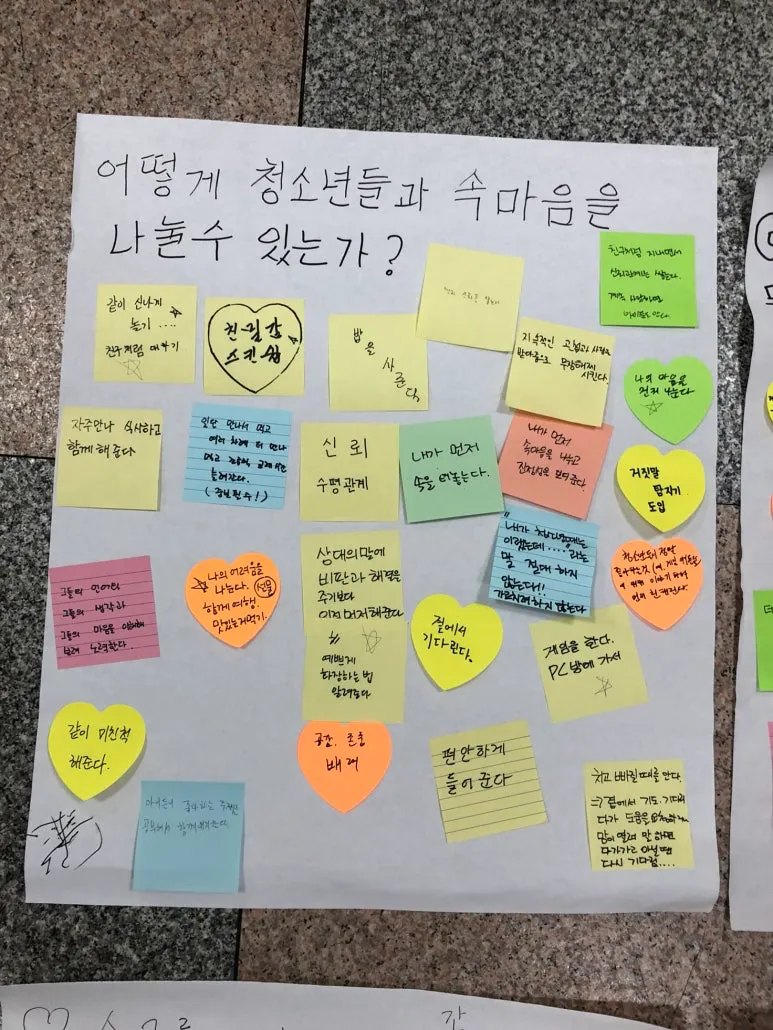 어떻게 청소년들과 속마음을
나눌수 있는가?
친구처럼 지내면서
신뢰관계는 쌓는다.
같이 신나게
놀기 ....
친구처럼 대하기
친밀감
스킨쉽
밥을 사준다
지속적인
무장해제
시킨다.
나의 마음을
먼저 나눈다
자주만나 식사하고
함께 해준다
일단 만나서 먹고
여러 차례 더 만나
먹고
늘려간다.
(간식 필수!)
신뢰
수평관계
내가 먼저
속을 터놓는다.
내가 먼저
속마음을 나누고
진정성을 보여준다.
거짓말
탐지기
도입
그들의 언어와
그들의 생각과
그들의 마음을 이해해
보려 노력한다.
나의 어려움을
나눈다. 선물
함께 여행.
맛있는거먹기.
상대의말에
비판과 해결을
주기보다
이정먼저해준다
"내가 청소년때는
이랬는데.... 라는
말 절대 하지
않는다!!
가르치려하지 않는다
예쁘게
화장하는 법
알려준다
곁에서
기다린다.
게임을 한다.
PC방에 가서
같이 미친척
해준다.
공간. 존중
배려
편안하게
들어준다
치고 빠질때를 안다.
곁에서 기도. 기다리
다가 도움을 요청하거나
맘이 열려 말 하면
다가가고 아닐땐
다시 기다림....